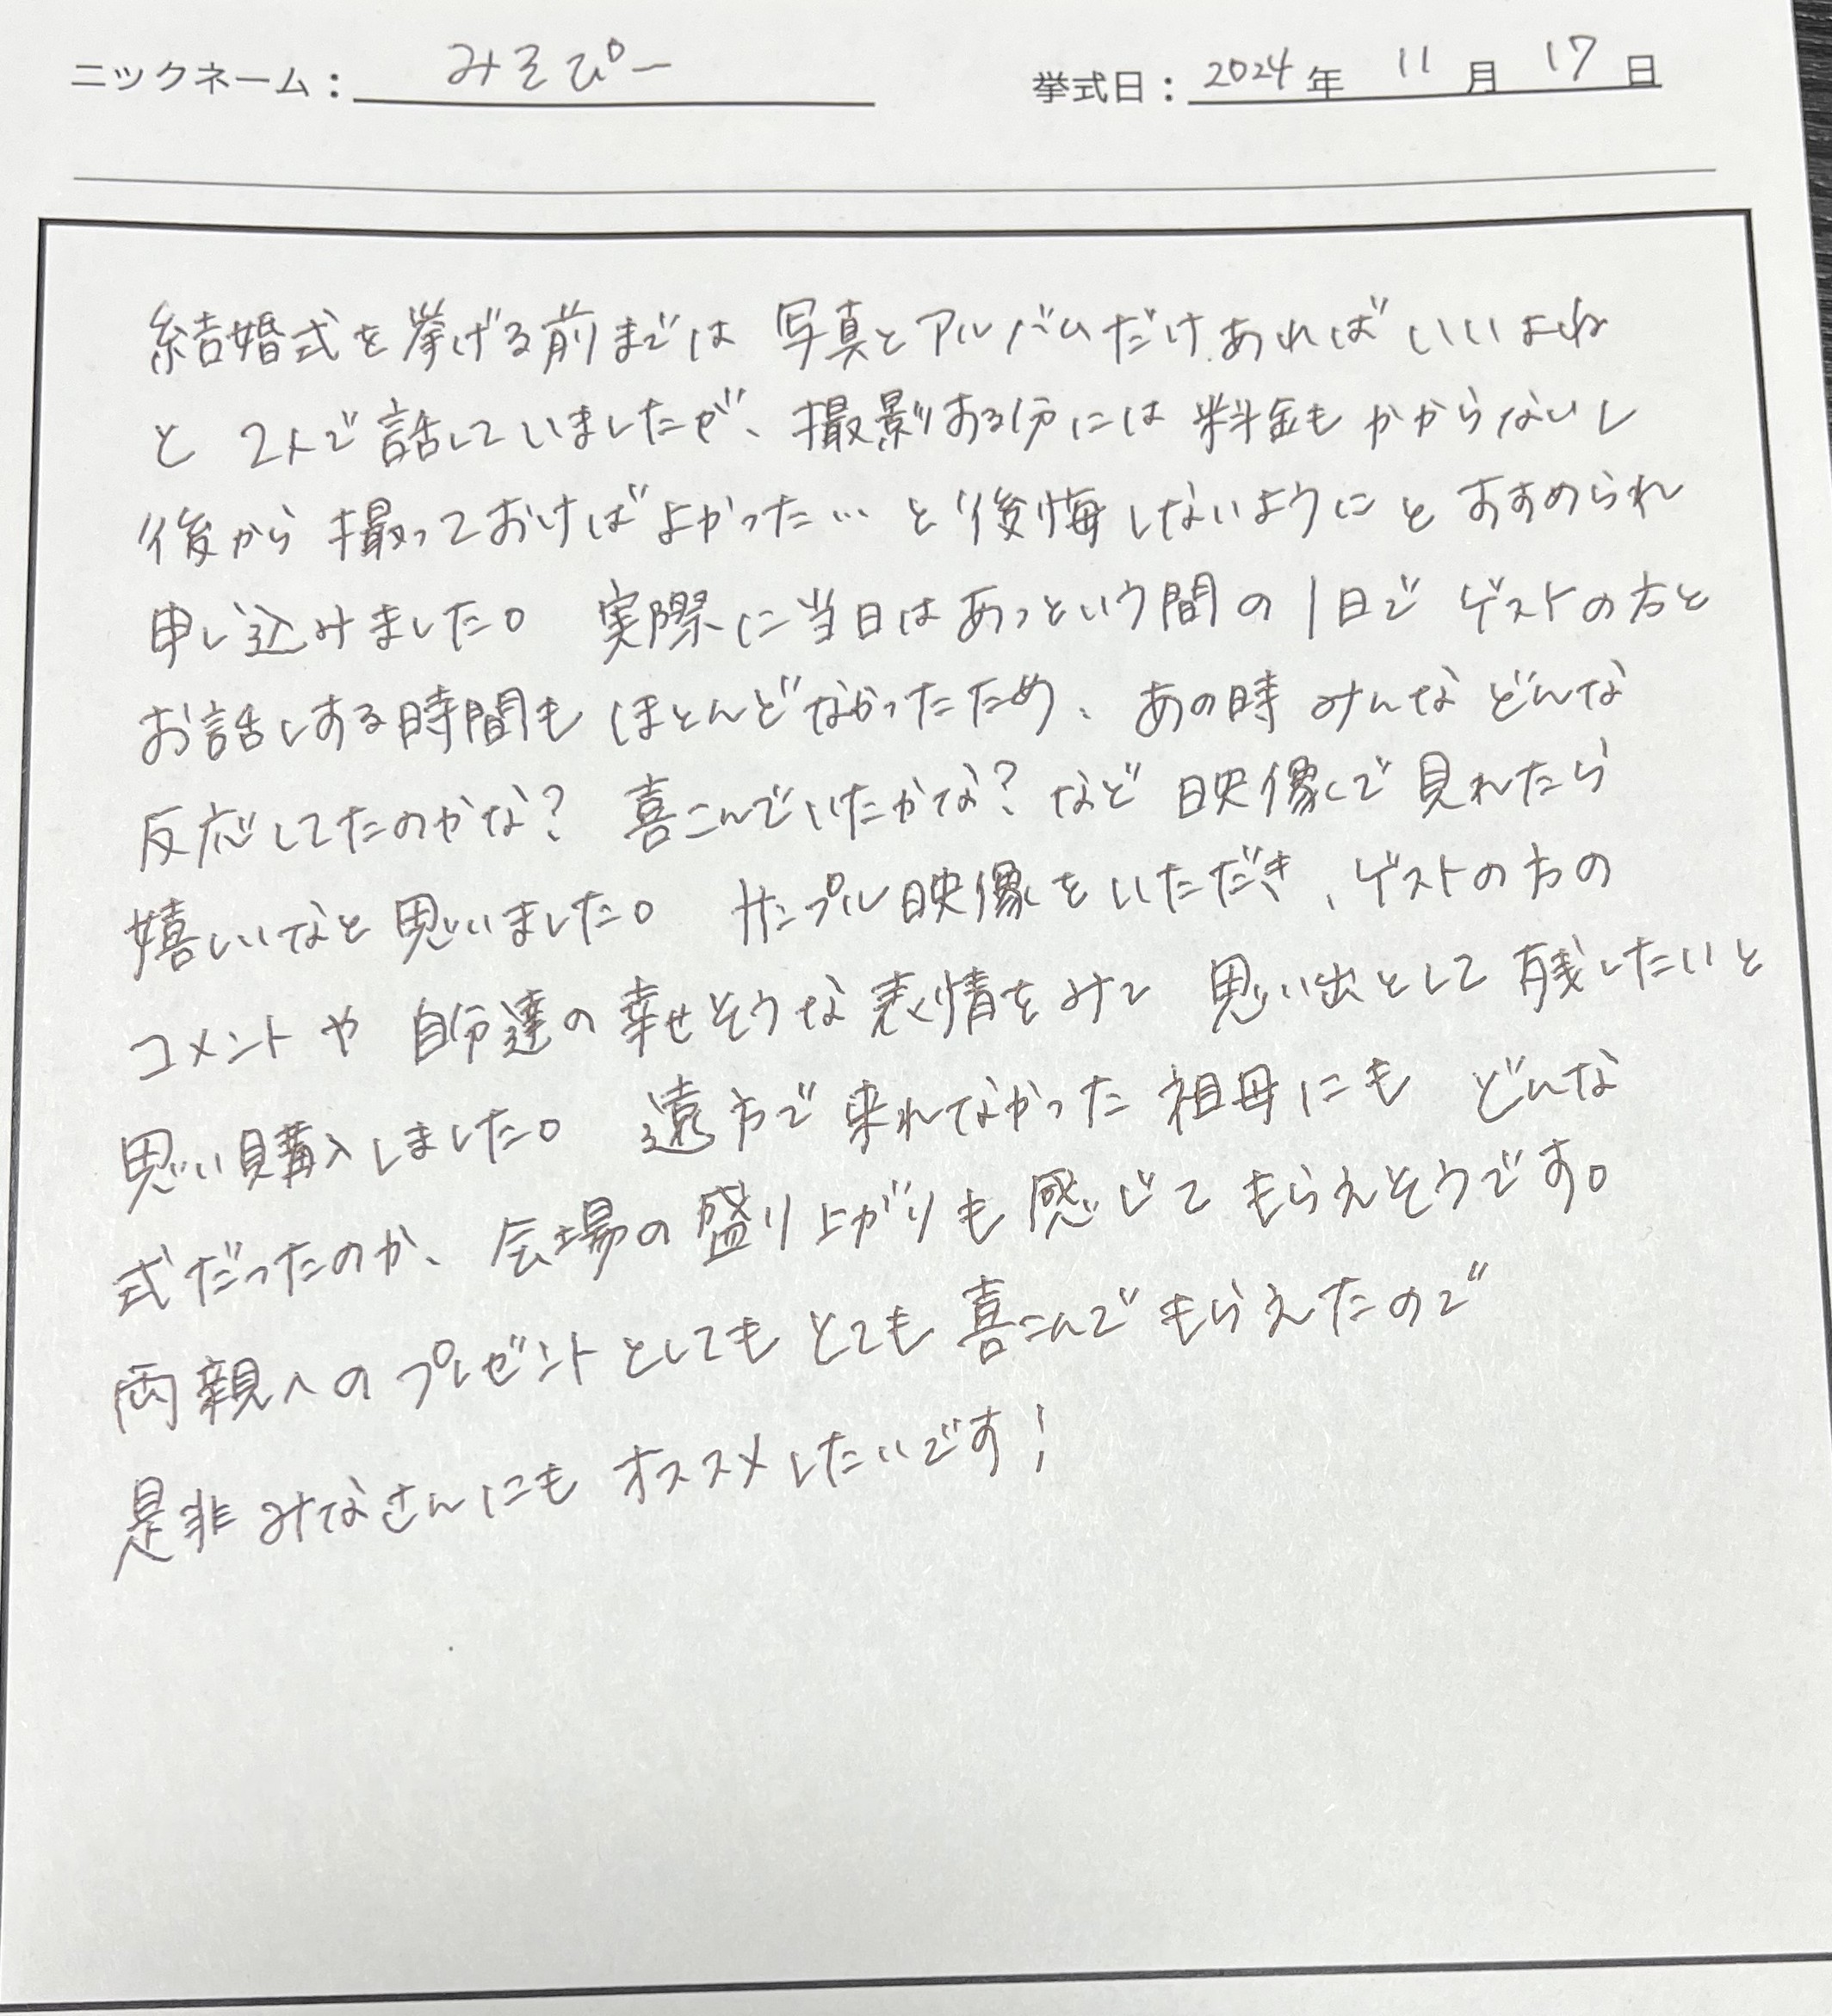 ニックネーム： みそぴー 挙式日： 2024年 11月 17日
結婚式を挙げる前までは 写真とアルバムだけあればいいよね
と 2人で話していましたが、撮影する分には 料金もかからないし
後から 撮っておけばよかった… と後悔しないようにと すすめられ
申し込みました。 実際に当日はあっという間の1日で ゲストの方と
お話しする時間も ほとんどなかったため、あの時 みんな どんな
反応してたのかな？ 喜こんでいたかな？ など 映像で見れたら
嬉しいなと思いました。 サンプル映像をいただき、ゲストの方の
コメントや 自分達の幸せそうな表情をみて 思い出として残したいと
思い購入しました。 遠方で来れなかった祖母にも どんな
式だったのか、会場の盛り上がりも感じてもらえそうです。
両親へのプレゼントとしてもとても喜こんでもらえたので
是非みなさんにもオススメしたいです！